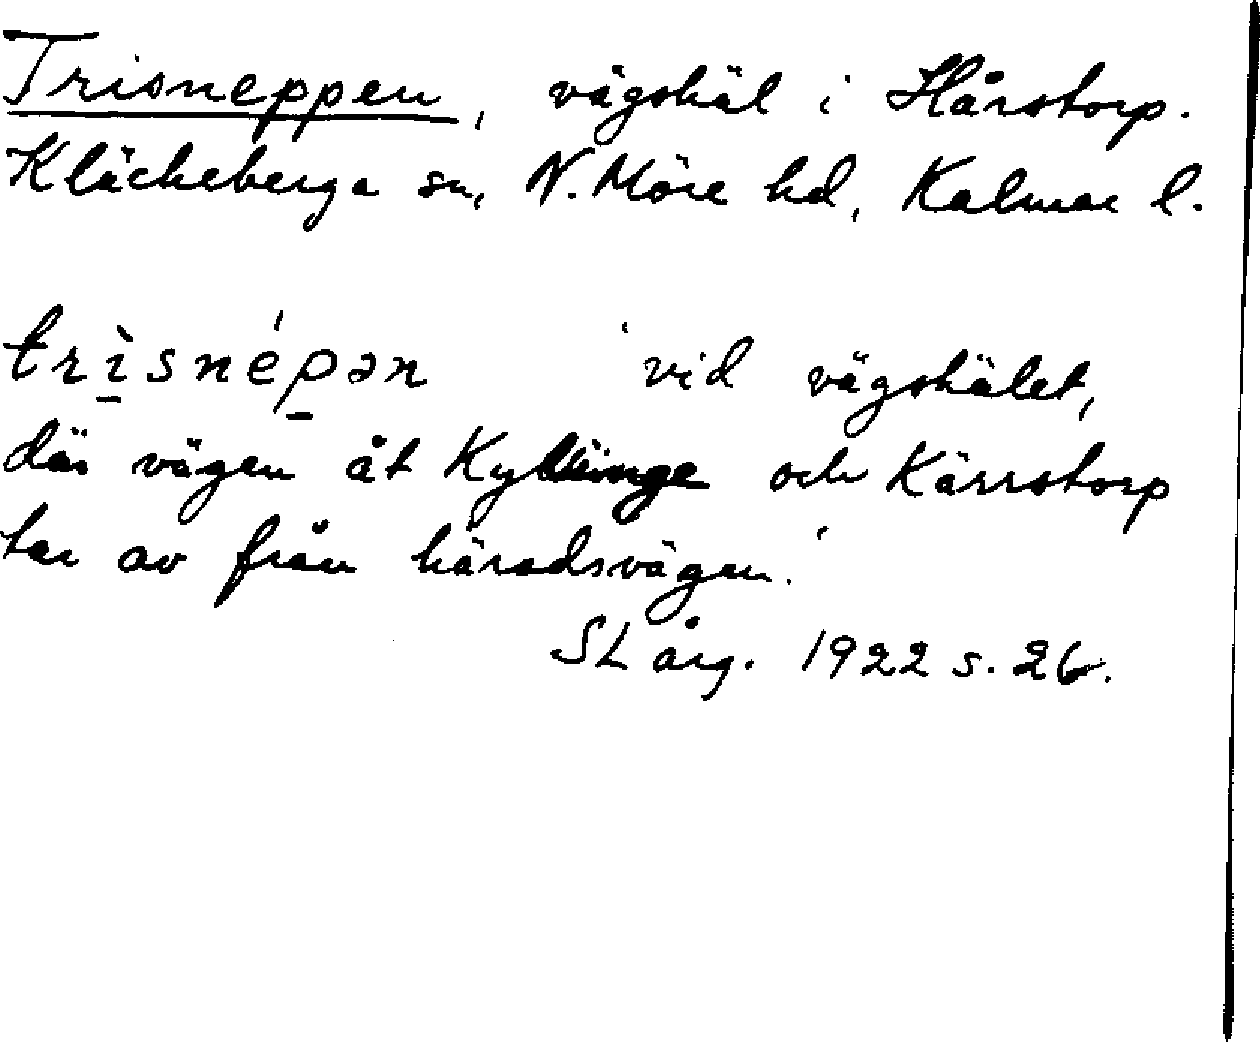 Trisneppen, vägskäl i Hårstorp.
Kläckeberga sn, N. Möre hd, Kalmar l.
trìsnépən 'vid vägskälet,
där vägen åt Kyllinge och Kärrstorp
tar av från häradsvägen.'
SL årg. 1922 s. 26.